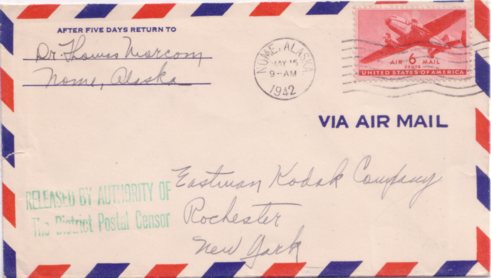 AFTER FIVE DAYS RETURN TO
Dr. Thomas Morcom
Nome, Alaska
NOME, ALASKA
MAY 15
9-AM
1942
AIR 6 MAIL
CENTS
UNITED STATES OF AMERICA
VIA AIR MAIL
RELEASED BY AUTHORITY OF
The District Postal Censor
Eastman Kodak Company
Rochester
New York